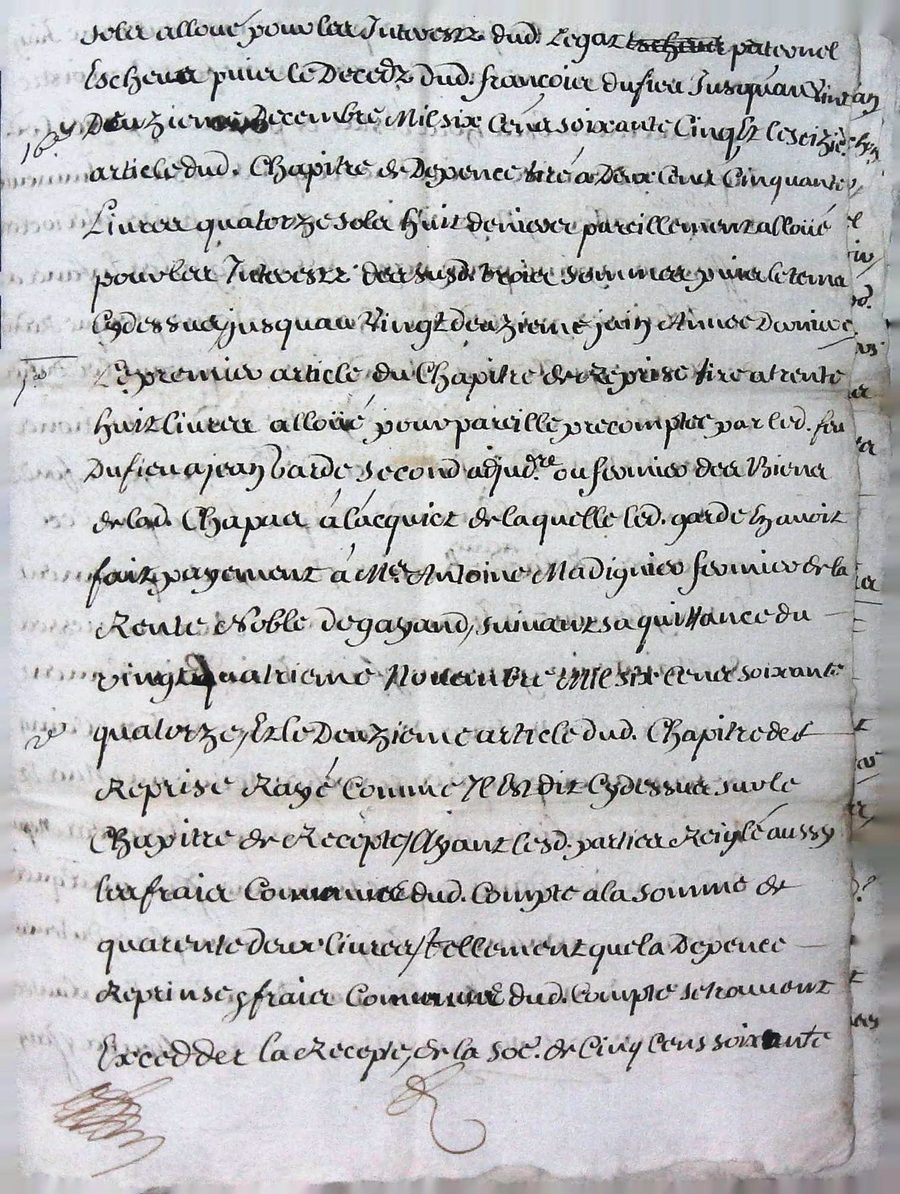 solz alloué pour les Interestz dud. Legat paternel
Escheuz puis le Decedz dud. francois dufieu Jusquau Vint
16e Deuziesme Decembre Mil six Cens soixante Cinq Et le seizie.
article dud. Chapitre de Depence tiré a Deux Cens Cinquante
Liures quatorze solz huit deniers pareillement alloüé
pour les Interestz des susd. trois sommes puis le temps
Cydessus, jusquau Vingtdeuzieme juin Année Derniere
1er Le premier article du Chapitre de Reprise tire a trente
huit liures alloüé pour pareille precomptée par led. feu
Dufieu a jean garde second adjud.re ou fermier des Biens
de lad. Chapus à lacquict de laquelle led. garde En auoit
fait payement à Me Antoine Madignier fermier de la
Rente Noble de gayand, suiuant sa quittance du
vingt quatrieme Nouembre Mil six Cens soixante
2e quatorze, Et le Deuzieme article dud. Chapitre de
Reprise Rayé Comme Il Est dit Cydessus sur le
Chapitre de Recepte / Ayant lesd. parties Reiglé aussy
les fraix Communs dud. Compte a la somme de
quarente deux liures / tellement que la Depence
Reprinse & fraix Communs dud. Compte se trouuent
Excedder la Recepte, de la So.e de Cinq Cens soixante